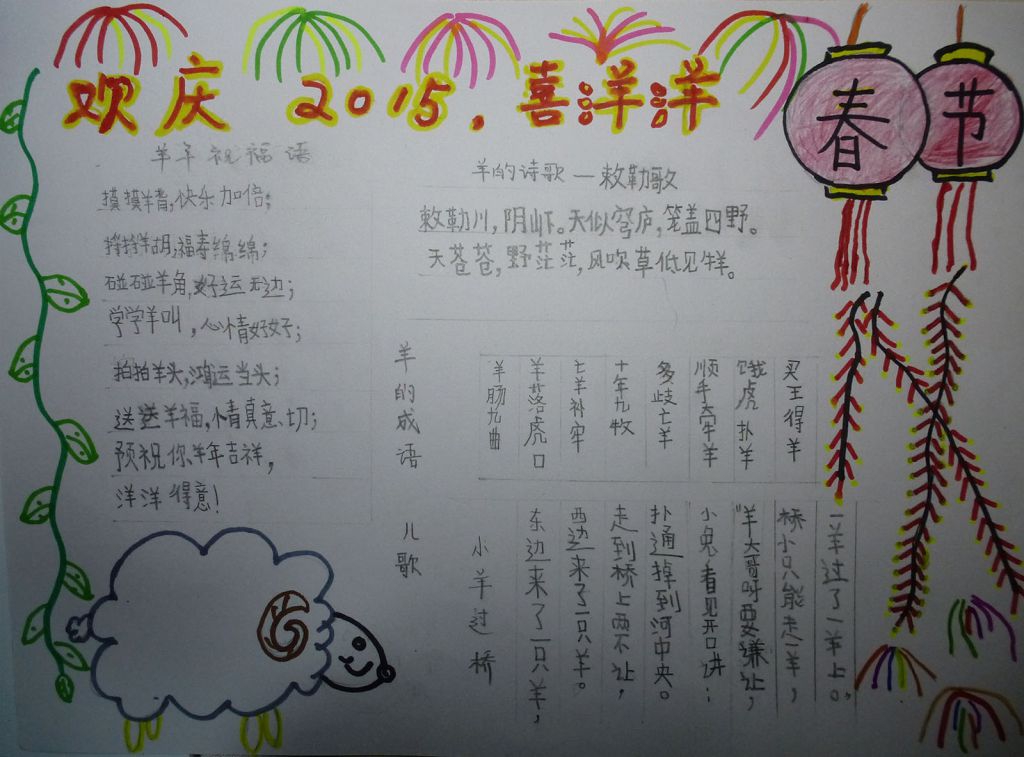 欢庆 2015,喜洋洋
春 节
羊年祝福语
摸摸羊背,快乐加倍;
捋捋羊胡,福寿绵绵;
碰碰羊角,好运无边;
学学羊叫,心情好好;
拍拍羊头,鸿运当头;
送送羊福,情真意切;
预祝你羊年吉祥,
洋洋得意!
羊的诗歌—敕勒歌
敕勒川,阴山下。天似穹庐,笼盖四野。
天苍苍,野茫茫,风吹草低见牛羊。
羊的成语
羊肠九曲
羊落虎口
亡羊补牢
十年九牧
多歧亡羊
顺手牵羊
饿虎扑羊
买王得羊
儿歌
小羊过桥
东边来了一只羊,
西边来了一只羊。
走到桥上两不让,
扑通掉到河中央。
小兔看见开口讲:
“羊大哥呀要谦让,
桥小只能走一羊,
一羊过了一羊上。”